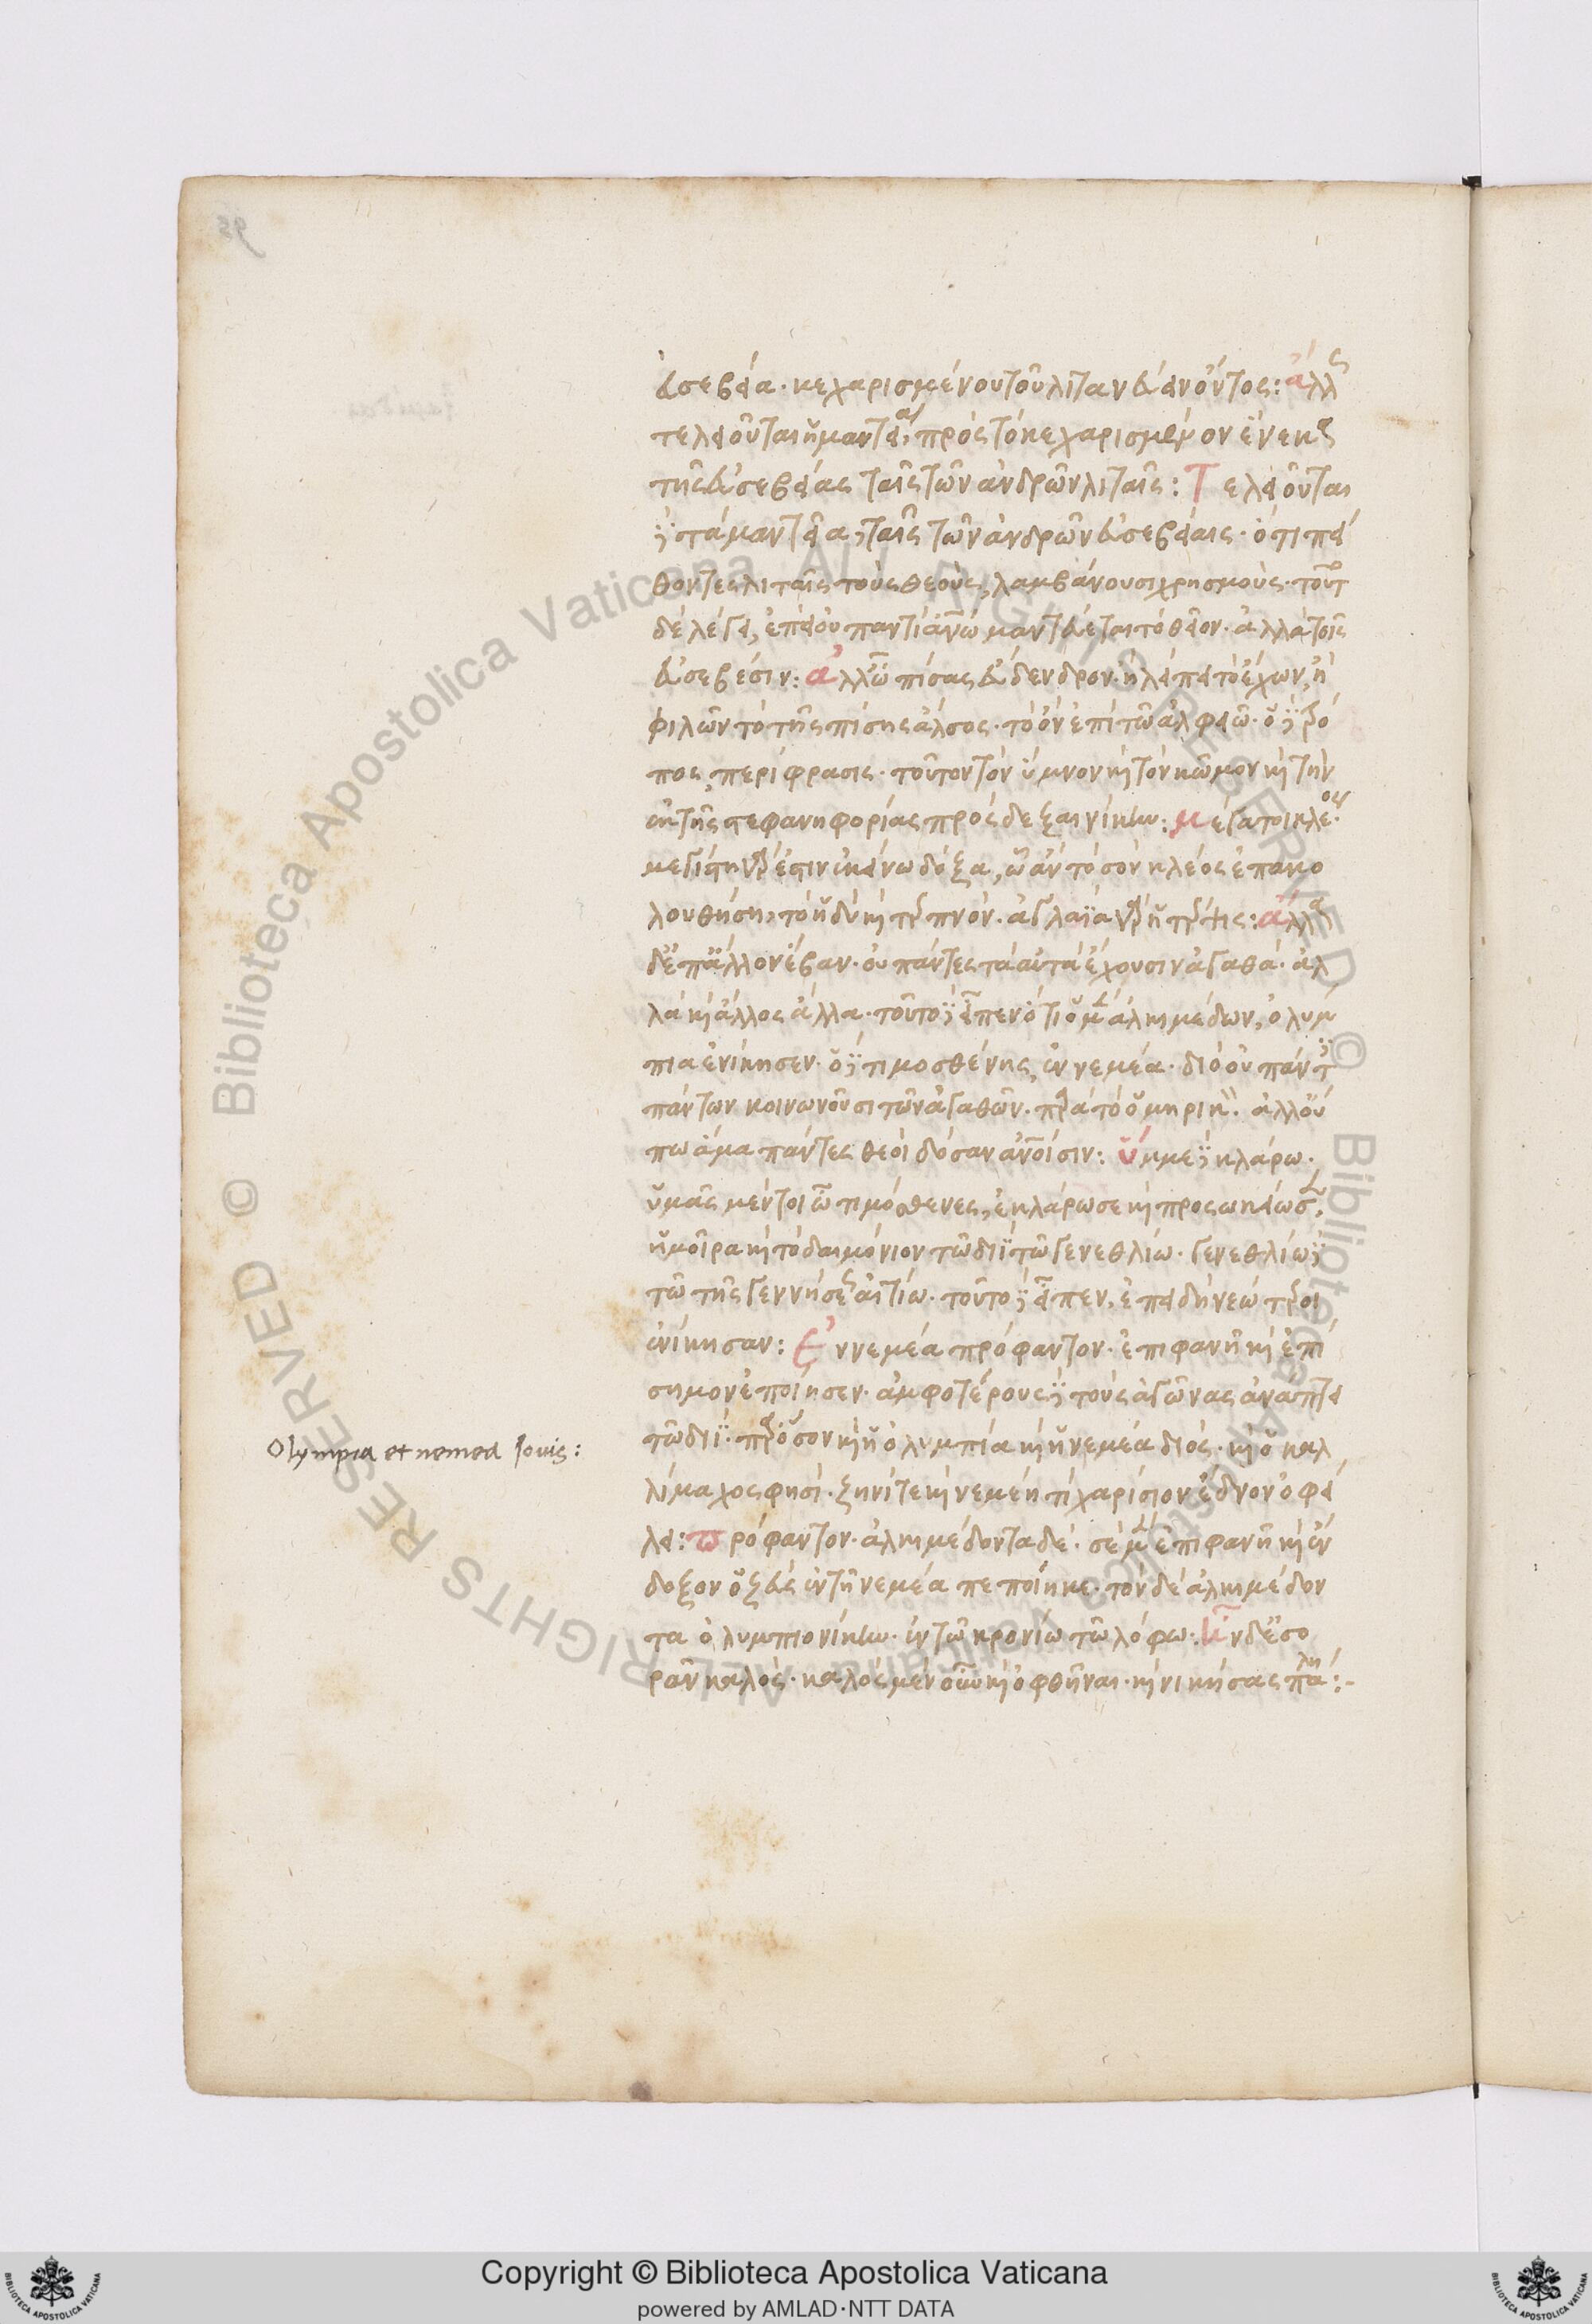 εὐσεβεία. κεχαρισμένου τοῦ λιτανεύειν ὄντος: ἄλλως
τελειοῦνται ἡ μαντεία, πρὸς τὸ κεχαρισμένον ἕνεκα
τῆς εὐσεβείας ταῖς τῶν ἀνδρῶν λιταῖς: Τελειοῦνται
δὲ τὰ μαντεῖα, ταῖς τῶν ἀνδρῶν εὐσεβείαις. ὅτι πεί
θοντες λιταῖς τοὺς θεοὺς, λαμβάνουσι χρησμούς. τοῦτο
δὲ λέγει, ἐπεὶ οὐ παντὶ ἀνῳ μαντεύεται τὸ θεῖον. ἀλλὰ τοῖς
εὐσεβέσιν: ἀλλ' ὦ πίσας εὔδενδρον. ἤλειπε τὸ ἔχων, ἢ
φιλῶν τὸ τῆς πίσης ἄλσος. τὸ ὂν ἐπὶ τῷ ἀλφειῷ. ὁ δὲ τρό
πος, περίφρασις. τοῦτον τὸν ὕμνον καὶ τὸν κῶμον καὶ τὴν
ἐκ τῆς στεφανηφορίας πρόσδεξαι νίκην: μέγα τοι κλέος.
μεγίστη γάρ ἐστιν ἐκείνῳ δόξα, ᾧ ἂν τὸ σὸν κλέος ἐπακο
λουθήσῃ, τὸ ἡδὺ καὶ τερπνόν. ἀγλαΐα γὰρ ἡ τέρψις: ἄλλα
δ' ἐπ' ἄλλον ἔβαν. οὐ πάντες τὰ αὐτὰ ἔχουσιν ἀγαθά. ἀλ
λὰ καὶ ἄλλος ἄλλα. τοῦτο δὲ εἶπεν ὅτι ὁ μὲν ἀλκιμέδων, ὀλύμ
πια ἐνίκησεν. ὁ δὲ τιμοσθένης, ἐν νεμέα. διὸ οὐ πάντες
πάντων κοινωνοῦσι τῶν ἀγαθῶν. παρὰ τὸ ὁμηρικόν. ἀλλ' οὔ
πω ἅμα πάντες θεοὶ δόσαν ἀνοίσιν: ὔμμε δ' ἐκλάρω.
ὑμᾶς μέντοι ὦ τιμόσθενες, ἐκλήρωσε καὶ προσῳκείωσεν,
ἡ μοῖρα καὶ τὸ δαιμόνιον τῷ διῒ τῷ γενεθλίῳ. γενεθλίῳ δὲ
τῷ τῆς γεννήσεως αἰτίῳ. τοῦτο δὲ εἶπεν, ἐπειδὴ νεώτεροι
ἐνίκησαν: Ἐν νεμέα πρόφαντον. ἐπιφανῆ καὶ ἐπί
σημον ἐποίησεν. ἀμφοτέρους δὲ τοὺς ἀγῶνας ἀνάπτει
τῷ διΐ. παρόσον καὶ ἡ ὀλυμπία καὶ ἡ νεμέα διός. καὶ ὁ καλ
λίμαχος φησί. ζηνί τε καὶ νεμέῃ τι χαρίσιον ἕδνον ὀφεί
λει: πρόφαντον. ἀλκιμέδοντα δέ. σὲ μὲν ἐπιφανῆ καὶ ἔν
δοξον ὁ ζεὺς ἐν τῇ νεμέα πεποίηκε. τὸν δὲ ἀλκιμέδον
τα ὀλυμπιονίκην. ἐν τῷ κρονίῳ τῷ λόφῳ. ἦν δ' ἐσο
ρᾶν καλός. καλὸς μὲν οὖν καὶ ὀφθῆναι. καὶ νικήσας πάλη:-
Olympia et nemea Iouis:
Copyright © Biblioteca Apostolica Vaticana
powered by AMLAD·NTT DATA